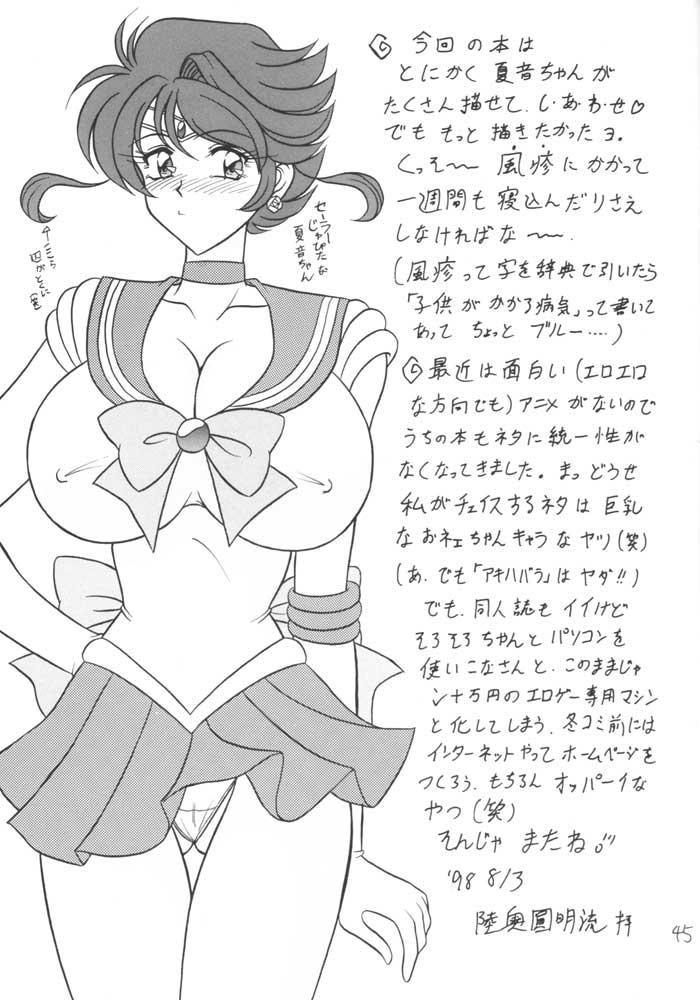 今回の本は
とにかく夏音ちゃんが
たくさん描せて、し・あ・わ・せ♡
でももっと描きたかったヨ。
くっそ〜〜風疹にかかって
一週間も寝込んだりさえ
しなければな〜〜.
(風疹って字を辞典で引いたら
「子供がかかる病気」って書いて
あってちょっとブルー……)
最近は面白い(エロエロ
な方向でも)アニメがないので
うちの本もネタに統一性が
なくなってきました。まっどうせ
私がチェイスするネタは巨乳
なおネェちゃんキャラなヤツ(笑)
(あ、でも「アキハバラ」はヤダ!!)
でも、同人誌もイイけど
そろそろちゃんとパソコンを
使いこなさんと、このままじゃ
ン十万円のエロゲー専用マシン
と化してしまう。冬コミ前には
インターネットやってホームページを
つくろう、もちろんオッパーイな
やつ(笑)
そんじゃまたね
'98 8/3
陸奥圓明流 拝
セーラー
じゅぴたな
夏音ちゃん
45